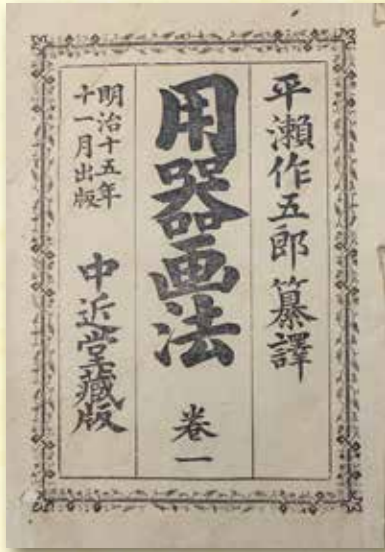 平瀨作五郎纂譯
用器画法 卷一
明治十五年
十一月出版
中近堂藏版